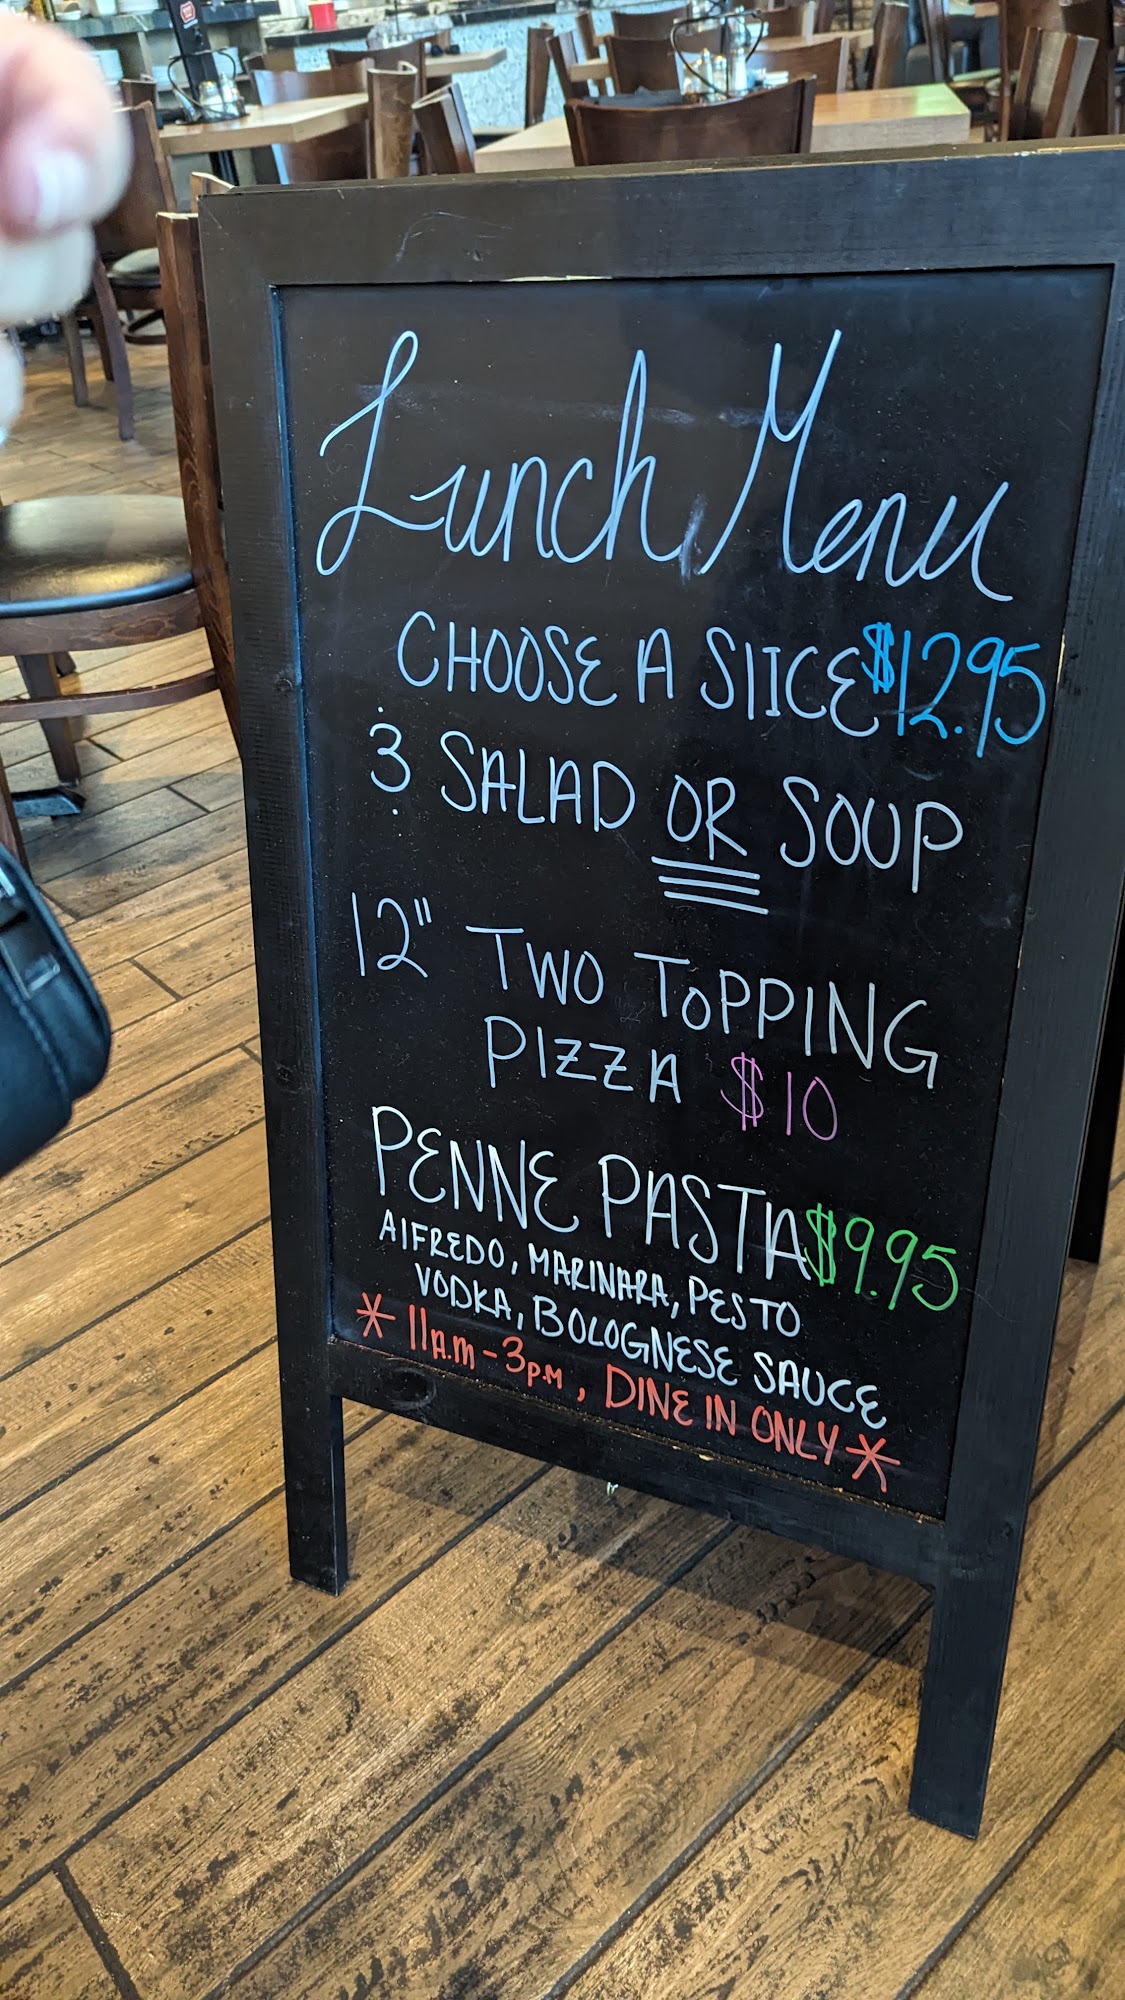 Lunch Menu
CHOOSE A SLICE $12.95
& SALAD OR SOUP
12" TWO TOPPING
PIZZA $10
PENNE PASTA $9.95
ALFREDO, MARINARA, PESTO
VODKA, BOLOGNESE SAUCE
* 11A.M - 3P.M, DINE IN ONLY *